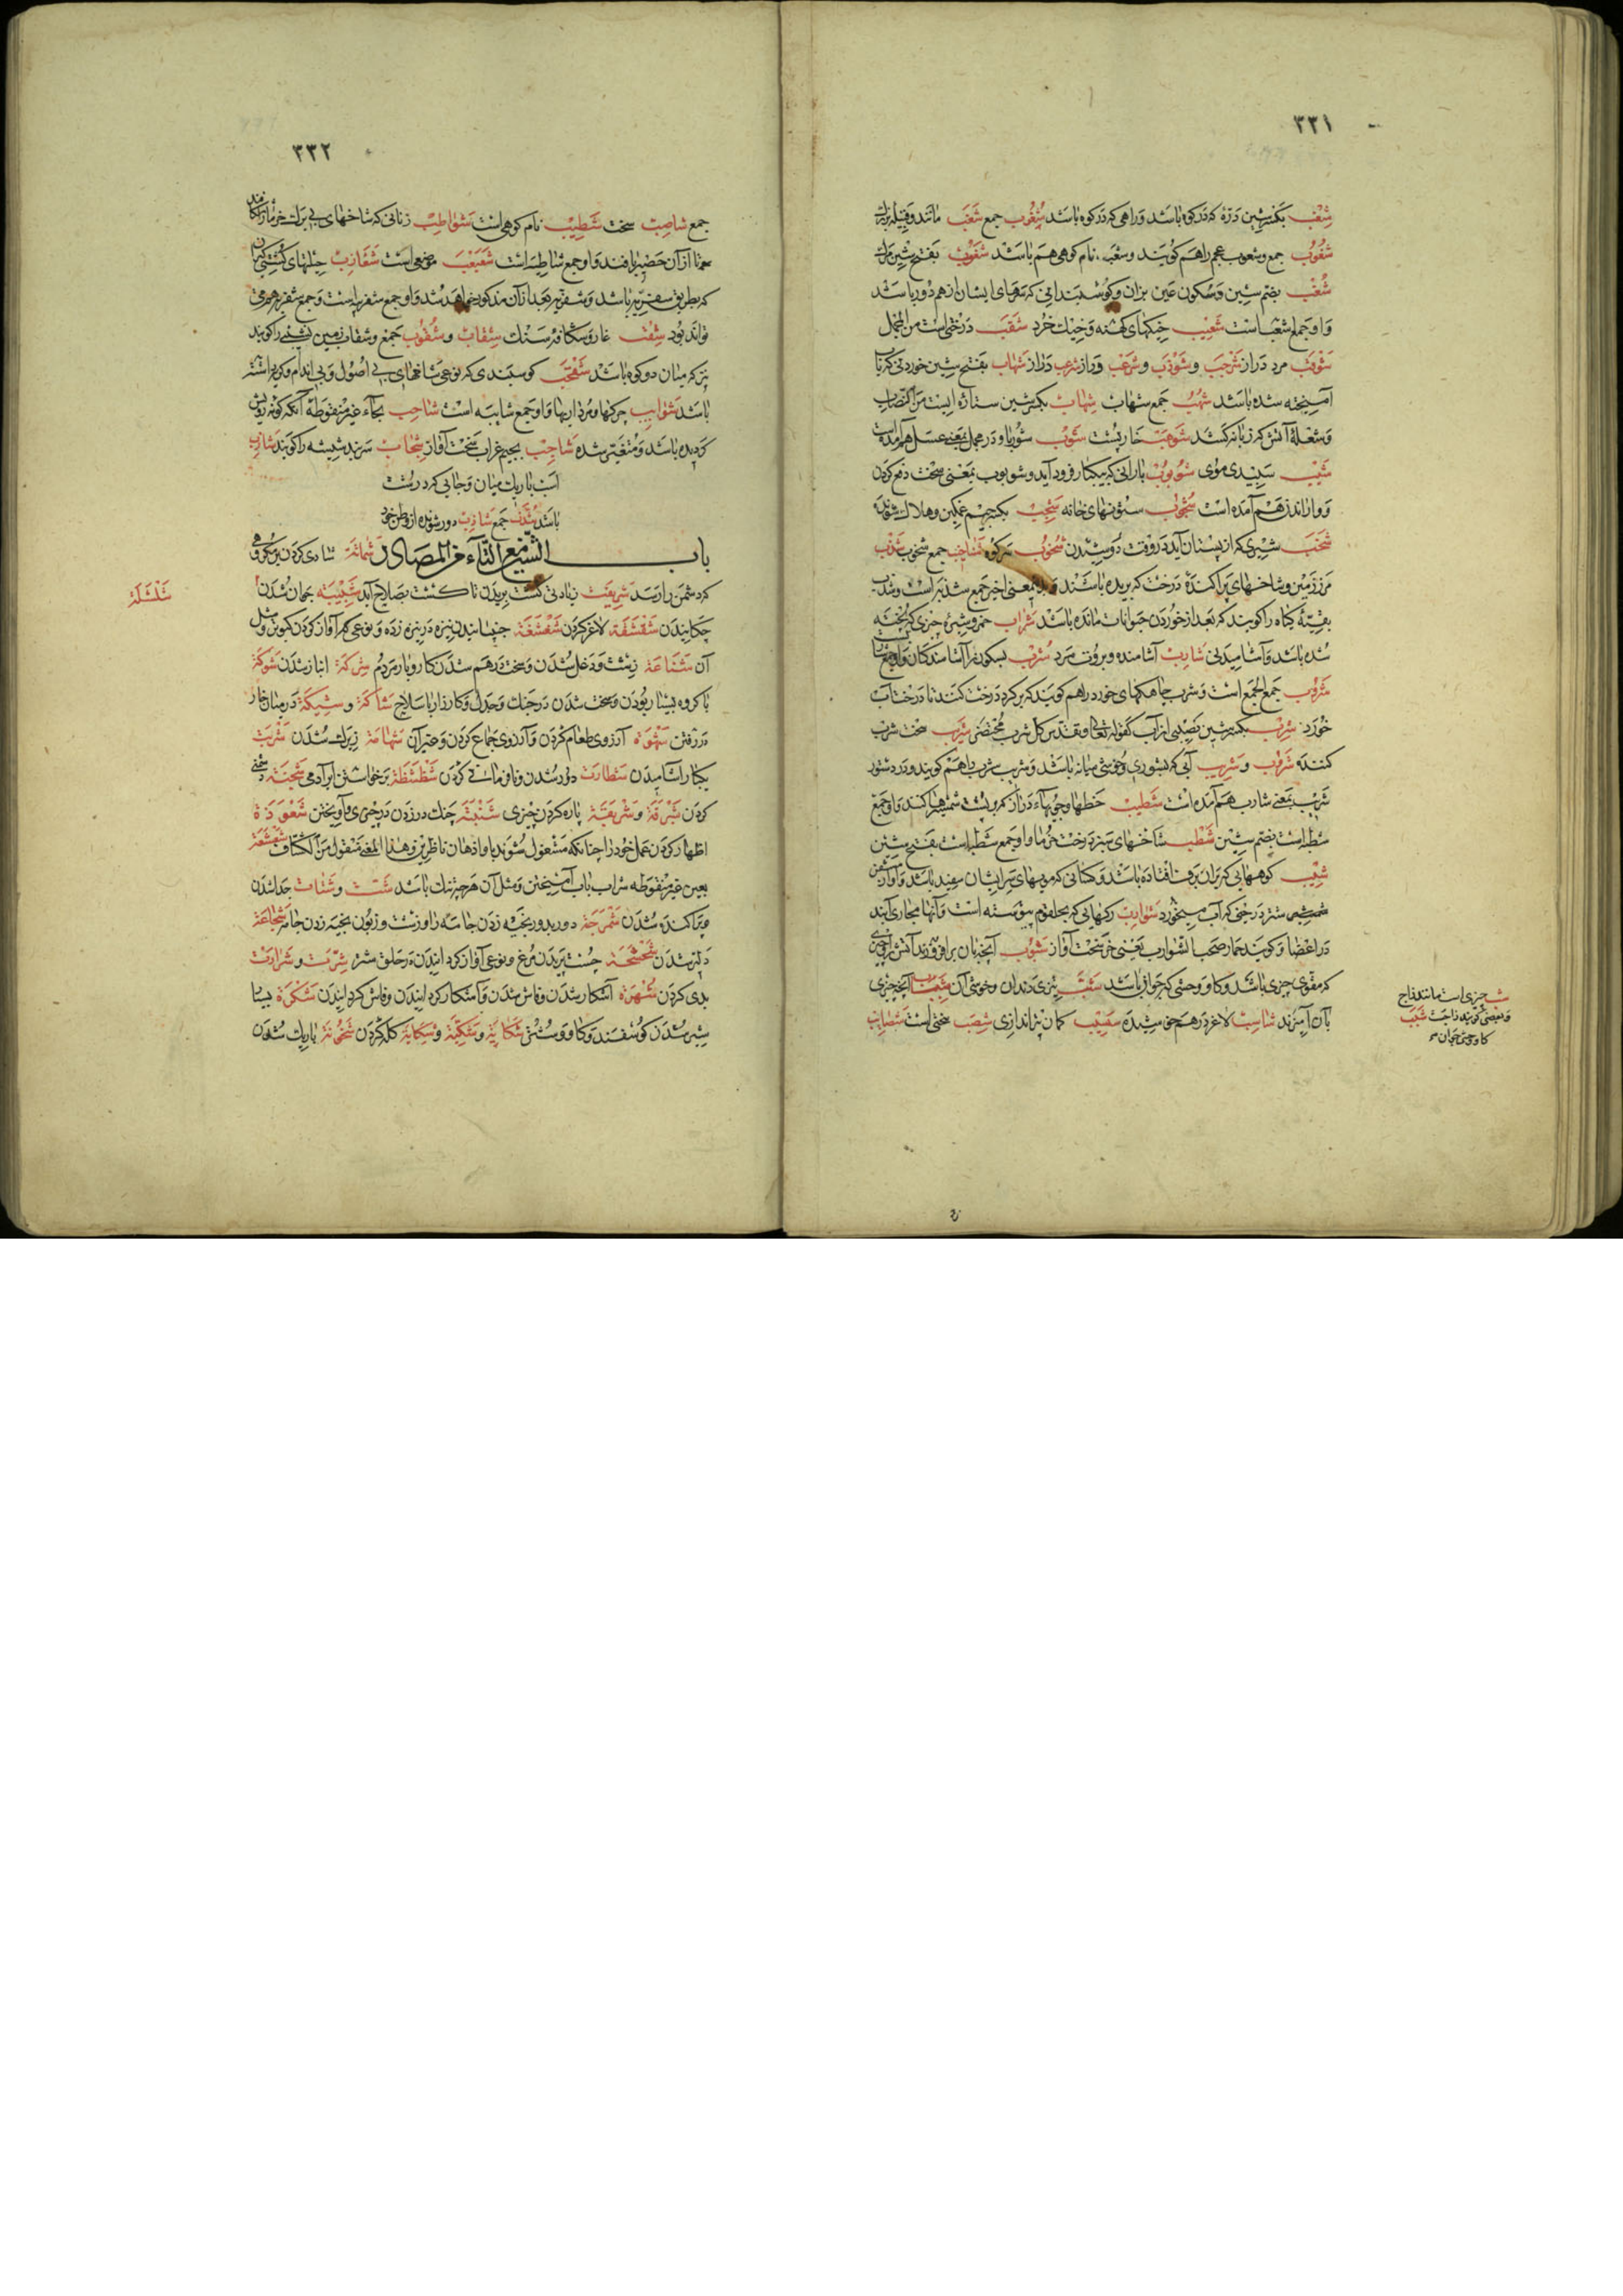 ۳۳۱
شِعْب بکسر شین دَرّهٔ که دَر کوه باشد و راهی که دَر کوه باشد شُعُوب جمع شَعْب مانند و قبیله بزرك
شُعُوب جمع و شعوب عجم را هم کویند و شعبه نام کوهی هم باشد شَعُوب بفتح شین مرك
شُعْب بضم شین و سکون عین بزان و کوسبندانی که سرهای ایشان از هم دور باشد
و او جمع اشعب است شَعِیب خیکهای کهنه و خیك خُرد شَقَب درختی است من المجمل
شَوقَب مرد دراز شَرْجَب و شَوْذَب و شَرْعَب دراز شَهاب بفتح شین خوردنی که باب
آمیخته شده باشد شُهُب جمع شهاب شِهاب بکسر شین ستاره ایست
و شعلهٔ آتش که زبانه کشد شَوهَب خارپشت شَوب شوربا و در مجمل بمعنی عسل هم آمده است
شَیْب سپیدی موی شُؤبُوب بارانی که بیکبار فرود آید و شوبوب بمعنی سخت دفع کردن
هم آمده است شُجُوب ستونهای خانه شَجِب بکسر جیم غمکین و هلاك شونده
شَخْب شیری که از پستان آید در وقت دوشیدن شُخُوب سرکوه شناخیب جمع شخوب شَذَب
مرز زمین و شاخهای پراکندهٔ درخت که بریده باشند و بمعنی اخیر جمع شذبه است و شذب
بقیهٔ کیاه را کویند که بعد از خوردن حیوانات مانده باشد شَراب خمر و شیره چیزی که پخته
شده باشد و آشامیدنی شارِب آشامنده و بروت مرد شَرْب بسکون را آشامندکان و او جمع شارب
شُرُوب جمع الجمع است و شرب چاهکهای خورد را هم کویند که بر کرد درخت کنند تا درخت آب
خُورَد شِرْب بکسر شین نصیبی از آب کقوله تعالی و تقدس کل شرب مُحْتَضَر شِرّیب سخت شرب
کننده شَرُوب و شَرِیب آبی که بشوری و خوشی میانه باشد و شریب شرب با هم کویند و در دستور
شریب بمعنی شارب هم آمده است شُطَب خطها و جویهاء دراز که بر پشت شمشیرها کنند و او جمع
شطبه است بضم شین شَطْب شاخهای سبز درخت خرما و او جمع شطبه است بفتح شین
شِیب کوههایی که بران برف افتاده باشد و کسانی که مویهای سر ایشان سفید باشد و آواز
شتر در وقتی که آب میخورد شَوارِب رکهایی که بحلقوم پیوسته است و آنها مجاری آبند
در اعضا و کویند حمار صخب الشوارب یعنی خر سخت آواز شَبُوب آنچه بان بر افروزند آتش را و چیزی
که مقوی چیزی باشد و کاو وحشی که جوان باشد شَنَب تیزی دندان و خوشی آن آنچه چیزی
بآن آمیزند شاسِب لاغر در هم خوشیده شَسِیب کمان تیراندازی شَصْب سختی است شَصائِب
شب چیزی است مانند زاج
و بعضی کویند زاجست شَبَب
کاو وحشی جوان
۳۳۲
جمع شاصِب سخت شَطِیب نام کوهی است شَواطِب زنانی که شاخهای بی برك خرما را شکافند
تا از آن حصیر بافند و او جمع شاطبه است شَعَبْعَب موضعی است شَغازِب حیلهای کُشتی کیران
که بطریق شغزبیه باشد و شغزبیه بعد از آن مذکور خواهد شد و او جمع شغزبیه است و جمع شغزبی هم می
تواند بود شِقْب غار و شکاف سنك شِقاب و شُقُوب جمع و شقاب زمین نشیب را کویند
نیز که میان دو کوه باشد کوسبندی که نوعی شاخهای بی اصول و بی اندام و کریه داشته
باشد شَوایِب چرکها و مردارها و او جمع شایبه است شاحِب بحاء غیر منقوطه آنکه کونه رویش
کردیده باشد و متغیر شده شاجِب بجیم غراب سخت آواز شِجاب سر بند شیشه را کویند شازِب
اسب باریك میان و جایی که درشت
باشد شُزَّب جمع شازِب دور شونده از وطن خود
باب الشین مع التاء من المصادر شَماتَة شادی کردن بر مکروهی
که دشمن را رسد شَرِیفَت زیادتی کشت بریدن تا کشت بصلاح آید شَبِیبَة جوان شدن
شَلْشَلَة
چکانیدن شَفْشَفَة لاغر کردن شَغْشَغَة جنبانیدن نیزه در نیزه زده و نوعی که آواز کردن کبوتر و مثل
آن شَناعَة زشت و دخل شدن و سخت در هم شدن کار و بار مردم شِرْکَة انباز شدن شَوکَة
با کروه بسیار بودن و سخت شدن در جنك و جدل و کارزار با سلاح شاکَة و شِیکَة در میان خار
در رفتن شَهْوَة آرزوی طعام کردن و آرزوی جماع کردن و غیر آن شَهامَة زیرك شدن شَرْبَت
یکبار آشامیدن شَطارَت دور شدن و نافرمانی کردن شَظْشَظَة برخواستن ایر آدمی شَحْنَة دشمنی
کردن شَبْرَقَة و شَرْبَقَة پاره کردن چیزی شَنْبَثَة چنك در زدن در چیزی و آویختن شَعْوَذَة
اظهار کردن عمل خود را چنانکه مشغول شوند باو اذهان ناظرین و هذا المعنی منقول من الکشاف شَعْشَعَة
بعین غیر منقوطه شراب باب آمیختن و مثل آن هر چیز تنك باشد شَتّ و شَتات جدا شدن
و پراکنده شدن شَمْرَجَة دور بدور بخیه زدن جامه را و زشت و زبون بخیه زدن جامه شَجاعَة
دلیر شدن شَحْشَحَة چست پریدن مرغ و نوعی آواز کردانیدن در حلق شتر شِرَّت و شَرارَت
بدی کردن شُهْرَة آشکار شدن و فاش شدن و آشکار کردانیدن و فاش کردانیدن شَکْرَة بسیار
شیر شدن کوسفند و کاو و شتر شَکایَة و شَکِیَّة و شِکایَة کله کردن باریك شدن